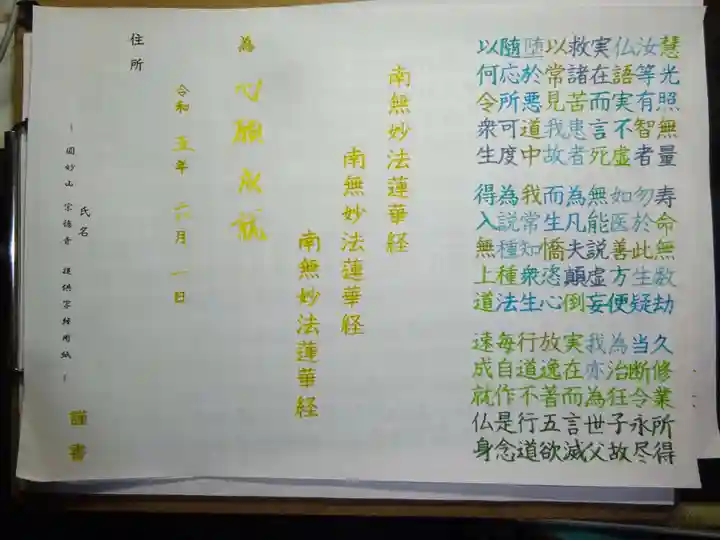 慧光照無量 寿命無数劫 久修業所得
汝等有智者 勿於此生疑 当断令永尽
仏語実不虚 如医善方便 為治狂子故
実在而言死 無能説虚妄 我亦為世父
救諸苦患者 為凡夫顛倒 実在而言滅
以常見我故 而生憍恣心 放逸著五欲
堕於悪道中 我常知衆生 行道不行道
随応所可度 為説種種法 毎自作是念
以何令衆生 得入無上道 速成就仏身
南無妙法蓮華経
南無妙法蓮華経
南無妙法蓮華経
為 心願成就
令和 五年 六月 一日
住所
氏名
謹書